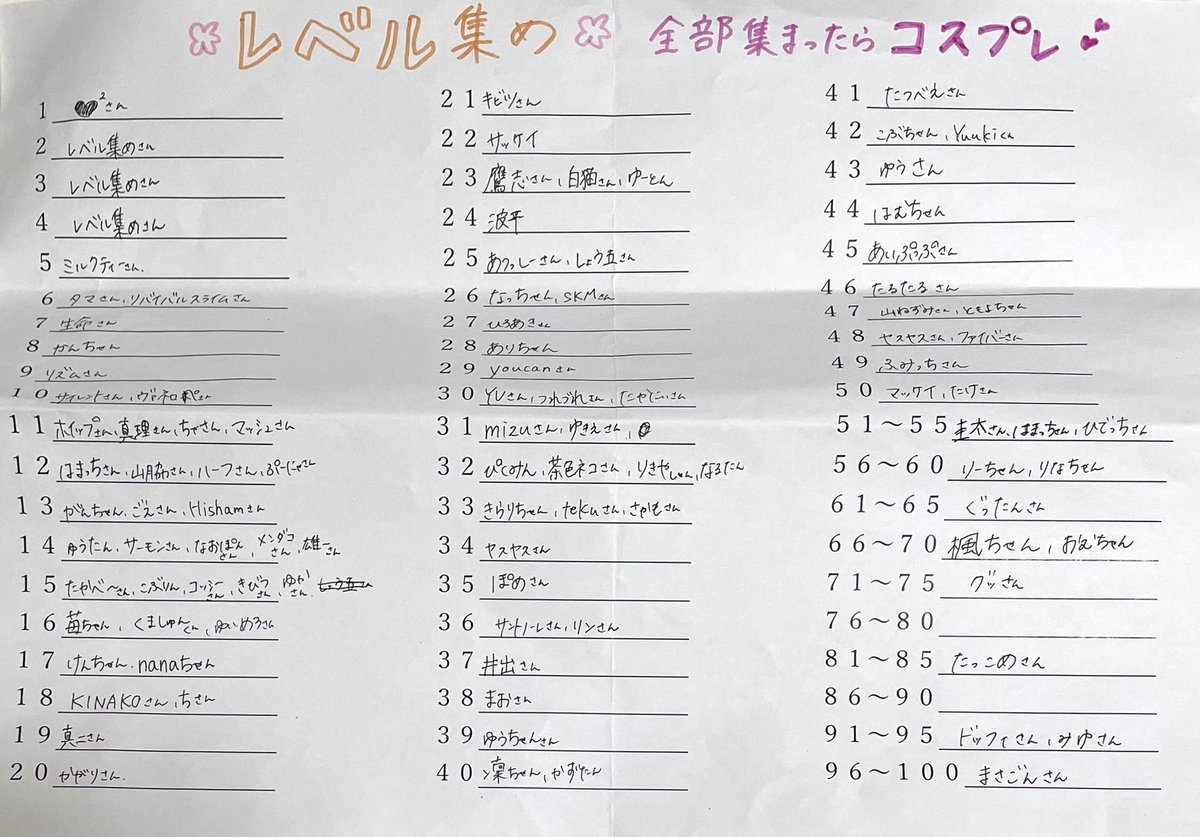 レベル集め 全部集まったらコスプレ
1 ♥²さん
2 レベル集めさん
3 レベル集めさん
4 レベル集めさん
5 ミルクティーさん.
6 タマさん,リバイバルスライムさん
7 生命さん
8 かんちゃん
9 リズムさん
10 サイレントさん,
11 ホイップさん,真理さん,ちゃさん,マッシュさん
12 はまっちさん,山脇さん,ハーフさん,ぷーにゃさん
13 がえちゃん.ごえさん,Hishamさん
14 ゆうたん,サーモンさん,なおぽんさん,メンダコさん,雄一さん
15 たかべ〜さん,こぶりん,コッシーさん,きびつさん,ゆかさん,
16 苺ちゃん,くましゅんくん,ゆいめろさん
17 けんちゃん.nanaちゃん
18 KINAKOさん,ちさん
19 真二さん
20 かがりさん.
21 キビツさん
22 サッケイ
23 鷹志さん,白猫さん,ゆーとん
24 波平
25 あっしーさん,しょう五さん
26 なっちゃん,SKMさん
27 ひろあきさん
28 ありちゃん
29 youcanさん
30 YUさん,つれづれさん,たかにぃさん
31 mizuさん,ゆきえさん,
32 ぴくみん,茶色ネコさん,りきやしゃん,なるたん
33 きらりちゃん,tekuさん,さかもさん
34 ヤスヤスさん
35 ぽめさん
36 サントノーレさん,リンさん
37 井出さん
38 まおさん
39 ゆうちゃんさん
40 凛ちゃん,かずたん
41 たつべえさん
42 こぶちゃん,Yuukiくん
43 ゆうさん
44 はむちゃん
45 あいぷぷさん
46 たるたるさん
47 山ねずみさん,ともよちゃん
48 ヤスヤスさん,ファイバーさん
49 ふみっちさん
50 マッケイ,たけさん
51〜55 圭太さん,はまっちゃん,ひでっちさん
56〜60 りーちゃん,りなちゃん
61〜65 ぐったんさん
66〜70 楓ちゃん,おむちゃん
71〜75 グッさん
76〜80
81〜85 たっこめさん
86〜90
91〜95 ドッフィさん,みゆさん
96〜100 まさごんさん